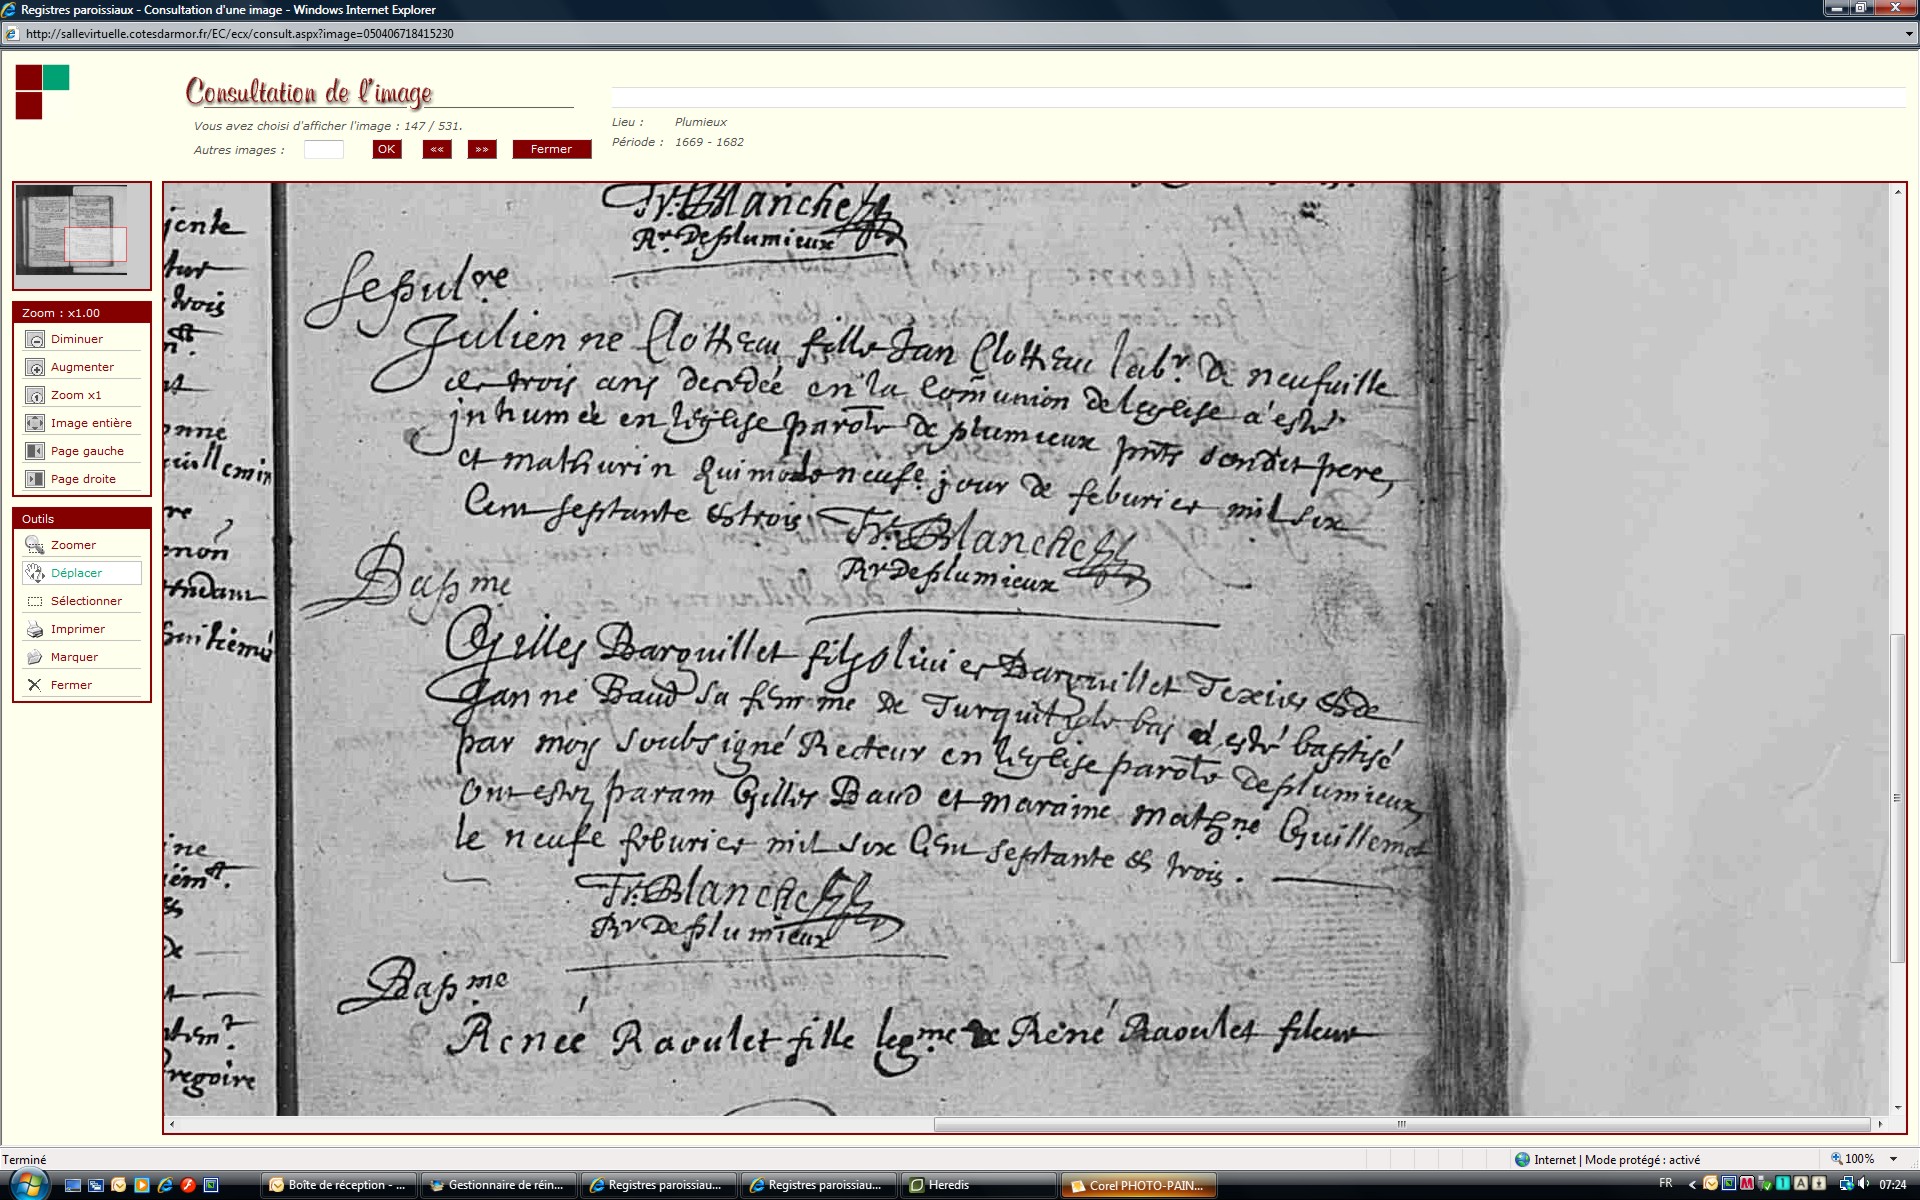 Registres paroissiaux - Consultation d'une image - Windows Internet Explorer
http://sallevirtuelle.cotesdarmor.fr/EC/ecx/consult.aspx?image=050406718415230
Consultation de l'image
Vous avez choisi d'afficher l'image : 147 / 531.
Autres images :
OK
««
»»
Fermer
Lieu : Plumieux
Période : 1669 - 1682
Zoom : x1.00
Diminuer
Augmenter
Zoom x1
Image entière
Page gauche
Page droite
Outils
Zoomer
Déplacer
Sélectionner
Imprimer
Marquer
Fermer
jente
trois
onne
uillemin
re
enon
ine
de
regoire
Fr: Blanche
Rr De plumieux
Sepulre
Julienne Clotteau fille Jan Clotteau labr. De neufuille
de trois ans decedée en la Comunion de leglise a esté
jnhumée en leglise parolle De plumieux pnts sondit pere,
et mathurin Quimo le neufe. jour de feburier mil six
Cent septante et trois Fr: Blanche
Rr De plumieux
Bapme
Gilles Barouillet fils olivier Barouillet Texier et de
Janne Baud sa femme de Turquit le bas a esté baptisé
par moy soubsigné Recteur en leglise parolle De plumieux,
ont esté param Gilles Baud et maraine mathne Guillemot
le neufe feburier mil six Cent septante et trois.
Fr: Blanche
Rr De plumieux
Bapme
Renée Raoulet fille legme de René Raoulet fileur
Terminé
Internet | Mode protégé : activé
100%
Boîte de réception - ...
Gestionnaire de réin...
Registres paroissiau...
Registres paroissiau...
Heredis
Corel PHOTO-PAIN...
FR
07:24